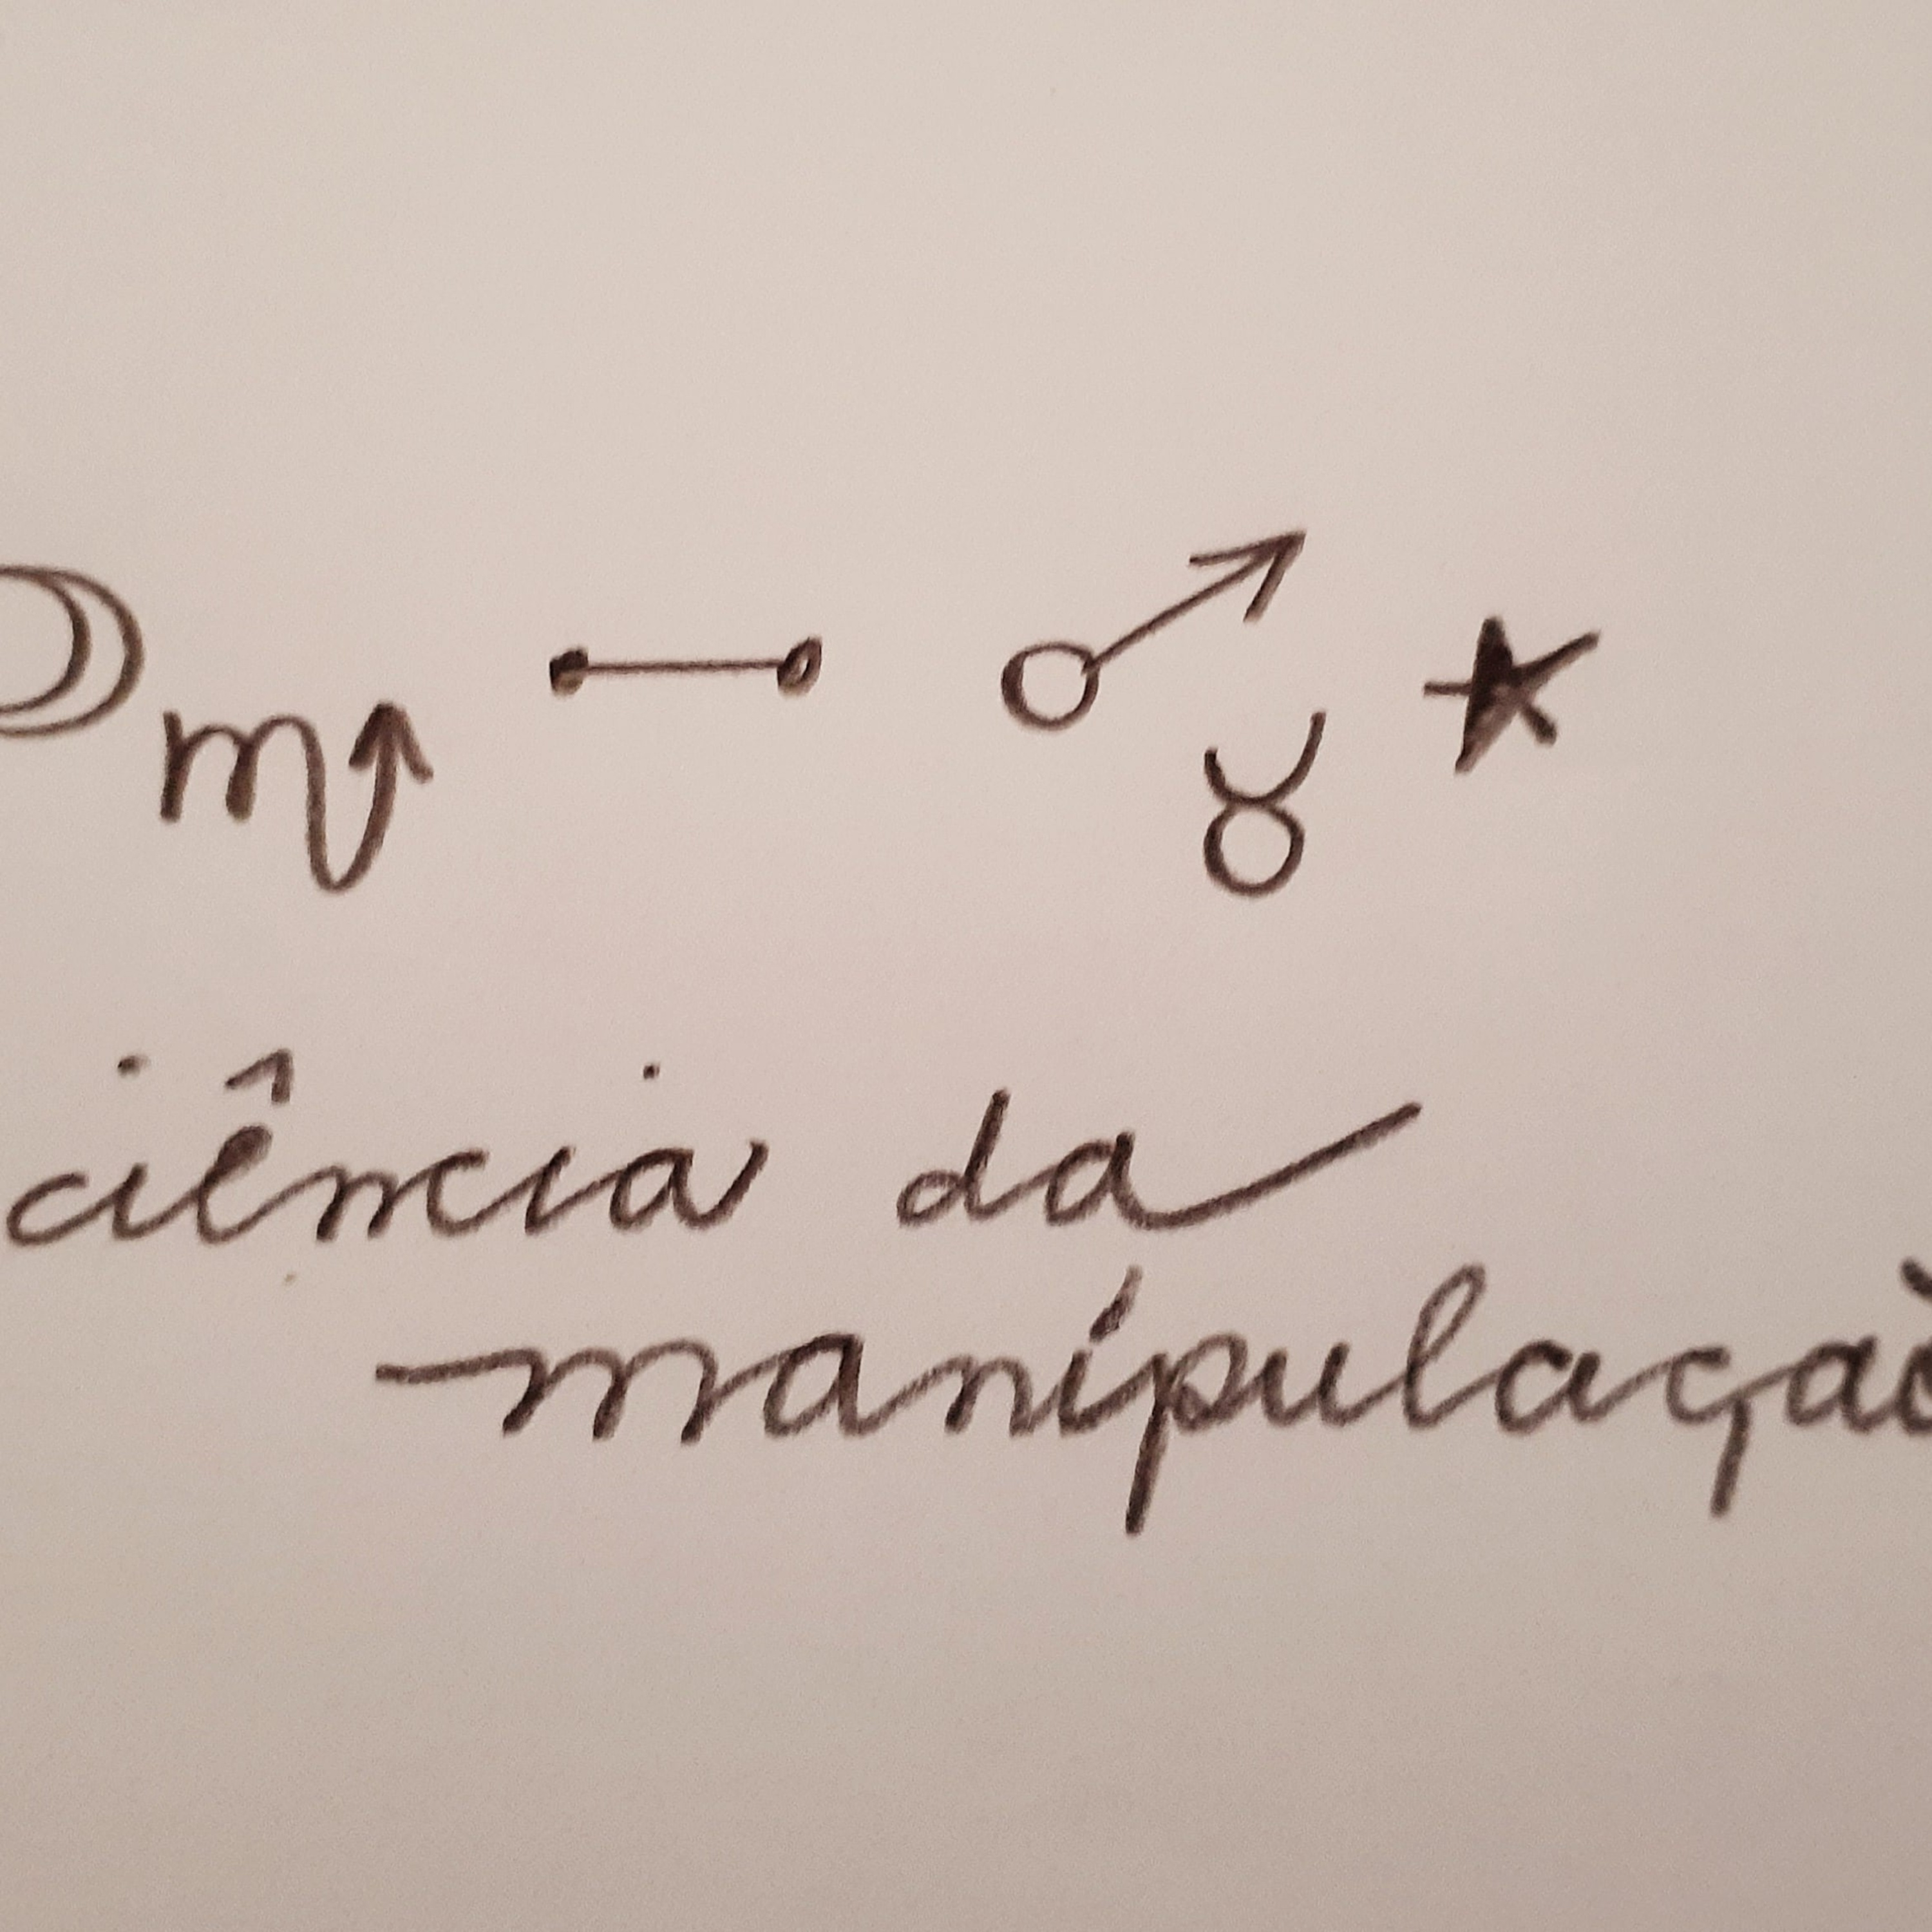 ciência da
manipulação